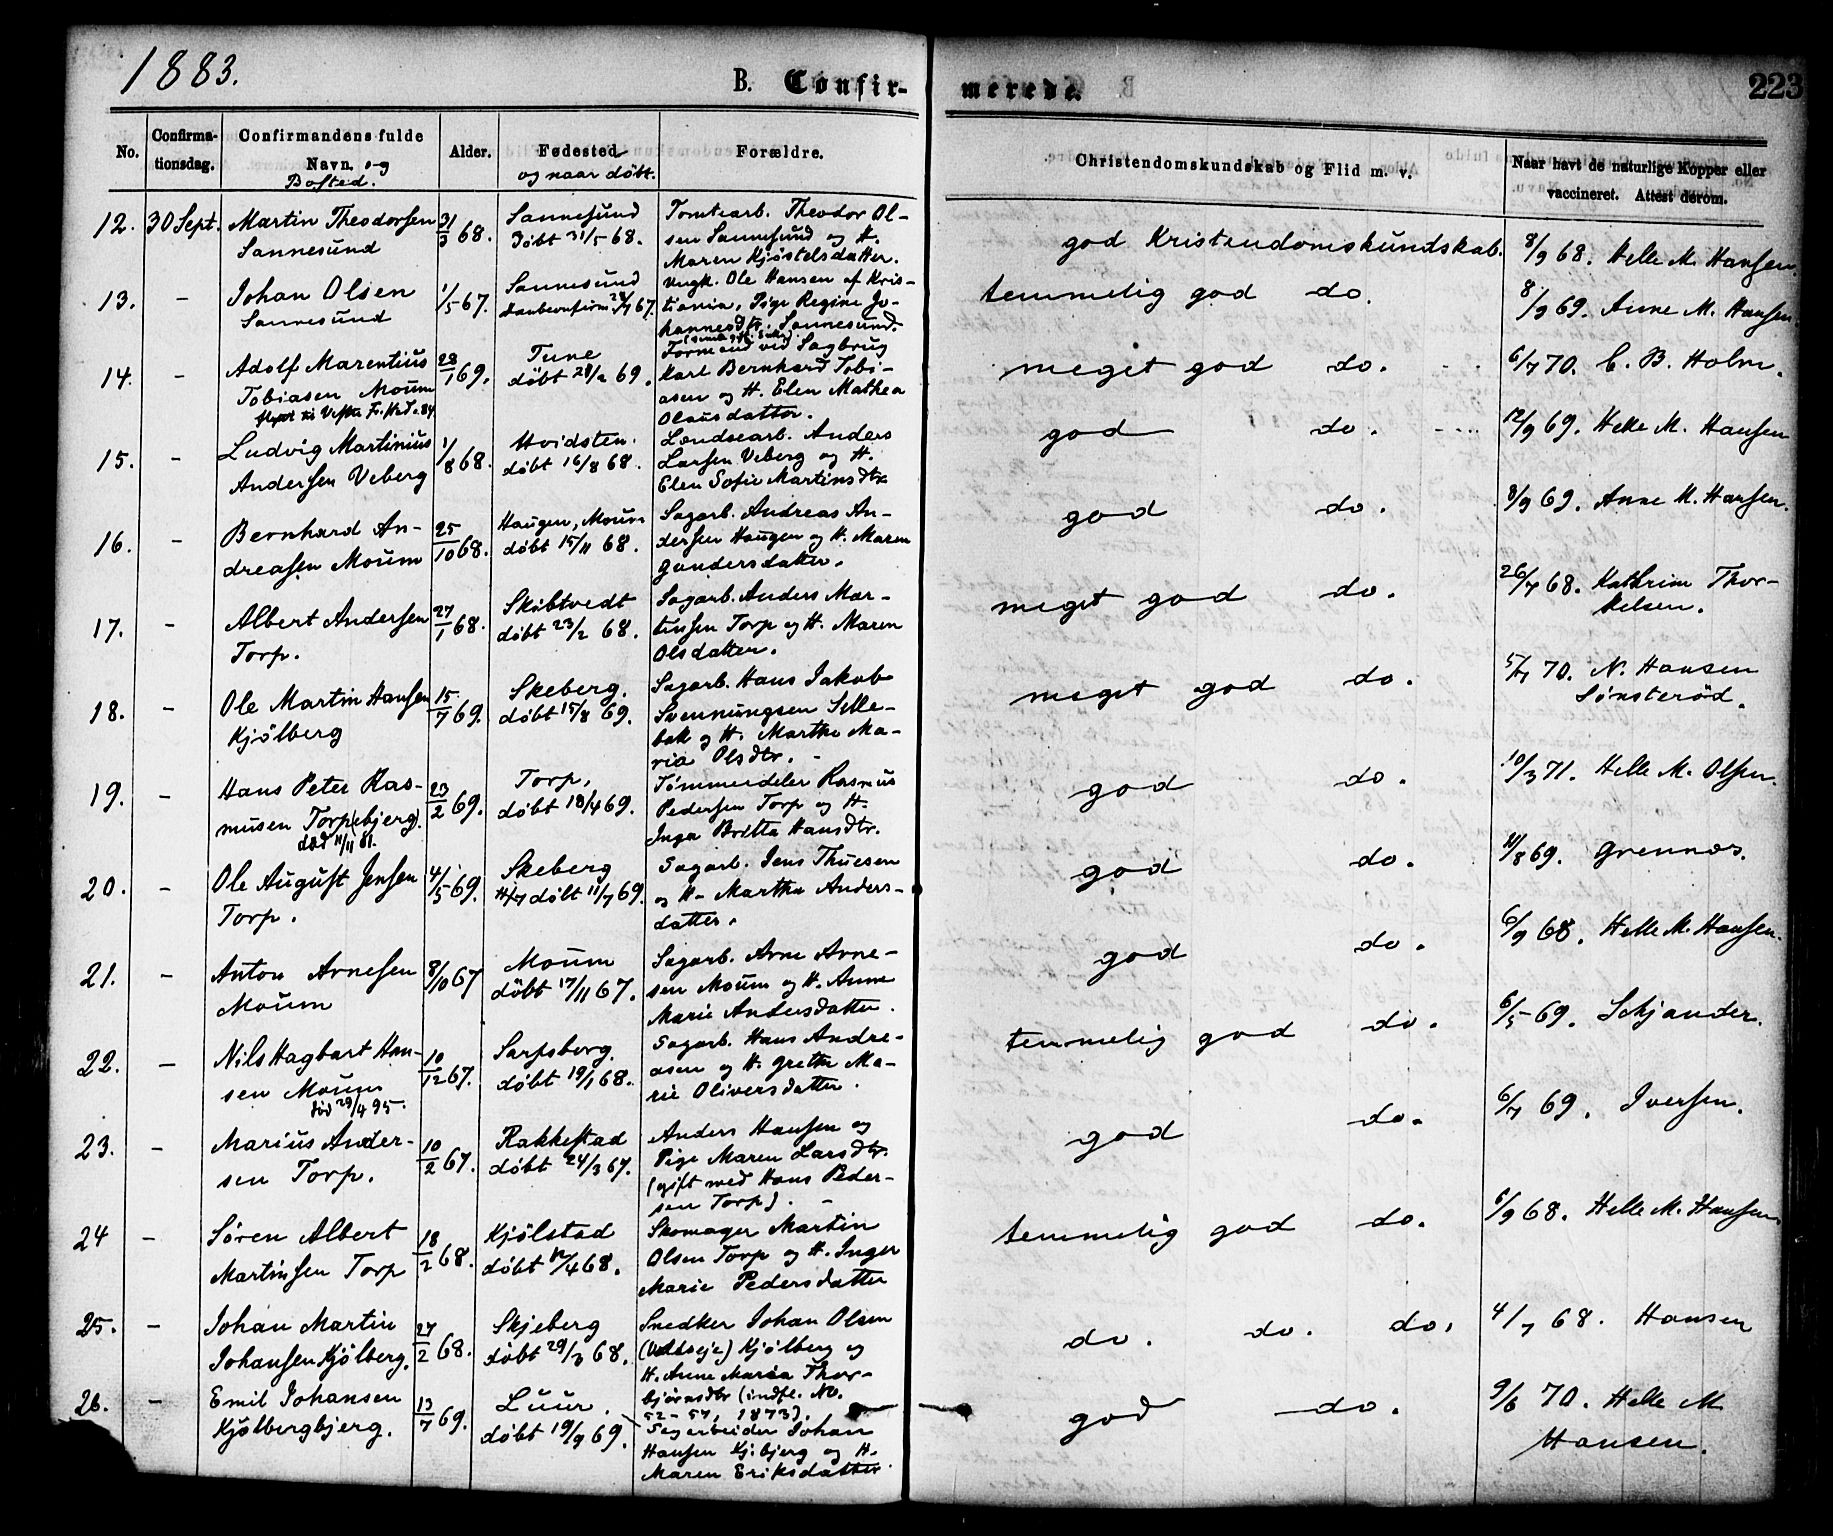 1883.
B. Confirmerede.
223
No.
Confirmationsdag.
Confirmandens fulde Navn, og Bosted.
Alder.
Fødested og naar døbt.
Forældre.
Christendomskundskab og Flid m. v.
Naar havt de naturlige Kopper eller vaccineret. Attest derom.
12. 30 Sept.
Martin Theodorsen
Sannesund
31/3 68.
Sannesund
Døbt 31/5 68.
Tomtearb. Theodor Ol-
sen Sannesund og H.
Maren Kjøstelsdatter.
god Kristendomskundskab.
8/9 68. Helle M. Hansen.
13. -
Johan Olsen
Sannesund
1/5 67.
Sannesund
67.
Ungk. Ole Hansen af Kris-
tiania, Pige Regine Jo-
hannesdtr. Sannesund.
temmelig god do.
8/9 69. Anne M. Hansen.
14. -
Adolf Marentius
Tobiasen Moum
28/1 69.
Tune
døbt 28/2 69.
Formand ved Sagbrug
Karl Bernhard Tobi-
asen og H. Elen Mathea
Olausdatter.
meget god do.
6/7 70. C. B. Holm.
15. -
Ludvig Martinius
Andersen Veberg
1/8 68.
Hvidsten.
døbt 16/8 68.
Londsearb. Anders
Larsen Veberg og H.
Elen Sofie Martinsdtr
god do.
12/9 69. Helle M. Hansen
16. -
Bernhard An-
dreasen Moum
25/10 68.
Haugen, Moum
døbt 15/11 68.
Sagarb. Andreas An-
dersen Haugen og H. Maren
Gundersdatter.
god do.
8/9 69. Anne M. Hansen.
17. -
Albert Andersen
Torp.
27/1 68.
Skibtvedt
døbt 23/2 68.
Sagarb. Anders Mar-
tinsen Torp og H. Maren
Olsdatter.
meget god do.
26/7 68. Kathrine Thor-
kelsen.
18. -
Ole Martin Hansen
Kjølberg
15/7 69.
Skeberg.
døbt 15/8 69.
Sagarb. Hans Jakob
Svennungsen Selle-
bak og H. Marthe Ma-
ria Olsdtr.
meget god do.
5/7 70. N. Hansen
Sønsterød.
19. -
Hans Peter Ras-
musen Torp(bjerg).
død 11/11 81.
23/2 69.
Torp,
døbt 18/4 69.
Tømmerdeler Rasmus
Pedersen Torp og H.
Inga Britta Hansdtr.
god do.
10/3 71. Helle M. Olsen.
20. -
Ole August Jensen
Torp.
4/5 69.
Skeberg
døbt 11/7 69.
Sagarb. Jens Thuesen
og H. Marthe Anders-
datter.
god do.
11/8 69. Grennæs.
21. -
Anton Arnesen
Moum
8/10 67
Moum
døbt 17/11 67.
Sagarb. Arne Arne-
sen Moum og H. Anne
Marie Andersdatter.
god do.
6/9 68. Helle M. Hansen.
22. -
Nils Hagbart Han-
sen Moum
død 29/4 95.
10/12 67.
Sarpsborg.
døbt 19/1 68.
Sagarb. Hans Andre-
asen og H. Grethe Ma-
rie Oliversdatter.
temmelig god do.
6/5 69. Schjander.
23. -
Marius Ander-
sen Torp.
10/2 67.
Rakkestad
døbt 24/3 67.
Anders Hansen og
Pige Maren Larsdtr.
(gift med Hans Peder-
sen Torp).
god do.
6/7 69. Iversen.
24 -
Søren Albert
Martinsen Torp
18/2 68.
Kjølstad
døbt 12/4 68.
Skomager Martin
Olsen Torp og H. Inger
Marie Pedersdatter
temmelig god do.
6/9 68. Helle M. Hansen
25. -
Johan Martin
Johansen Kjølberg.
27/2 68.
Skjeberg
døbt 29/3 68.
Snedker Johan Olsen
Kjølberg og
H. Anne Maria Thor-
bjørnsdtr (indfl. No.
52-57, 1873).
do. do. do.
4/7 68. Hansen
26. -
Emil Johansen
Kjølbergbjerg.
13/7 69.
Luur.
døbt 19/9 69.
Sagarbeider Johan
Hansen Kj.bjerg og H.
Maren Eriksdatter
god do.
9/6 70. Helle M
Hansen.